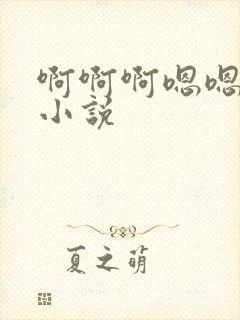 啊啊啊嗯嗯
小说
夏之萌